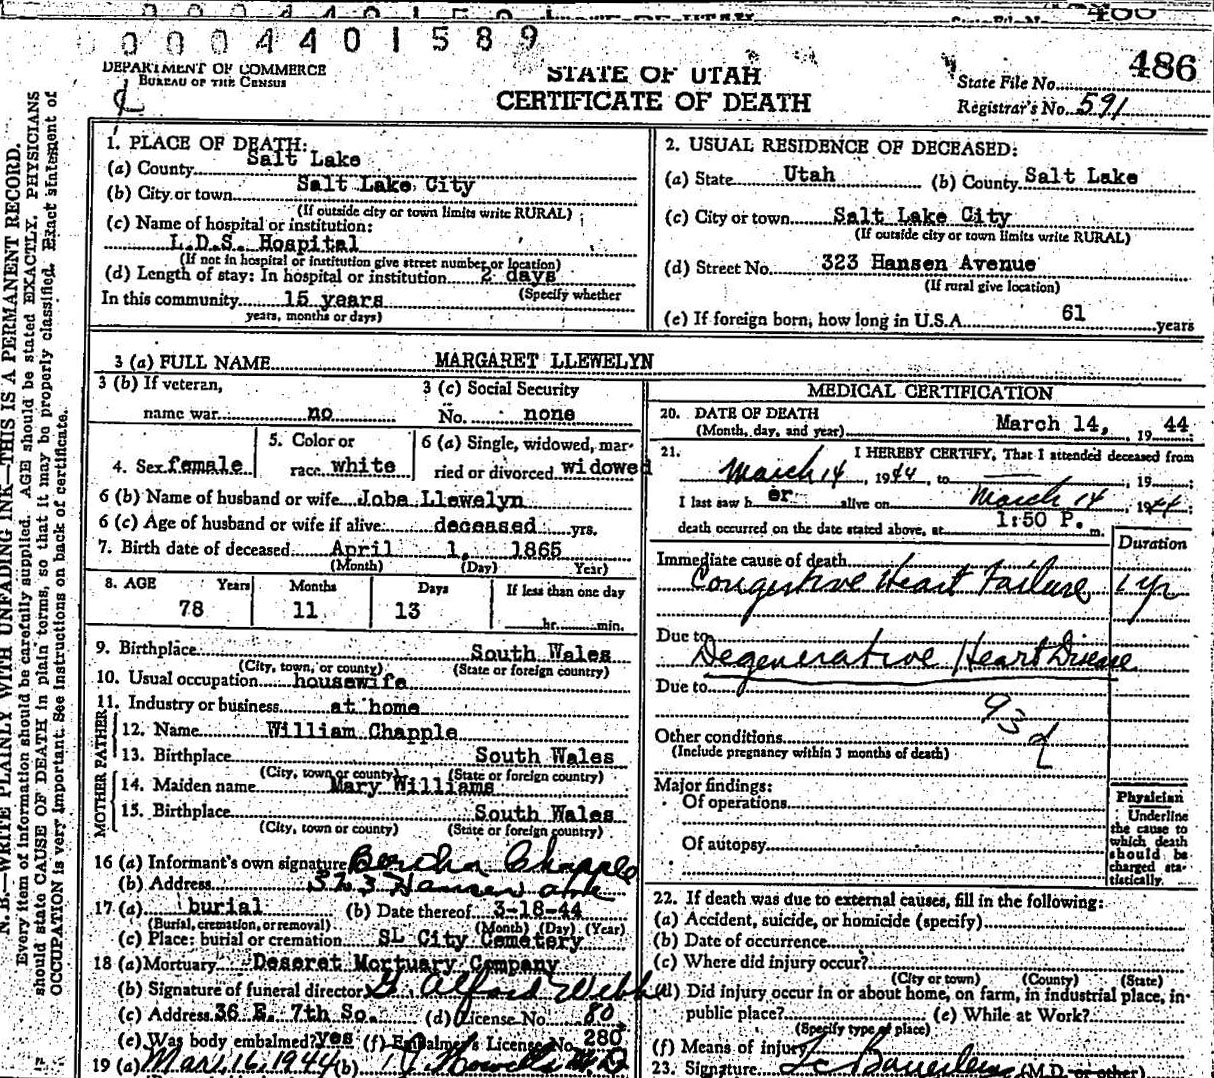 0 0 0 4 4 0 1 5 8 9
DEPARTMENT OF COMMERCE
BUREAU OF THE CENSUS
STATE OF UTAH
CERTIFICATE OF DEATH
486
State File No.
Registrar's No. 591
N. B.—WRITE PLAINLY WITH UNFADING INK—THIS IS A PERMANENT RECORD.
Every item of information should be carefully supplied. AGE should be stated EXACTLY. PHYSICIANS
should state CAUSE OF DEATH in plain terms, so that it may be properly classified. Exact statement of
OCCUPATION is very important. See instructions on back of certificate.
1. PLACE OF DEATH:
(a) County Salt Lake
(b) City or town Salt Lake City
(If outside city or town limits write RURAL)
(c) Name of hospital or institution:
L.D.S. Hospital
(If not in hospital or institution give street number or location)
(d) Length of stay: In hospital or institution 2 days
(Specify whether
In this community 15 years
years, months or days)
2. USUAL RESIDENCE OF DECEASED:
(a) State Utah (b) County Salt Lake
(c) City or town Salt Lake City
(If outside city or town limits write RURAL)
(d) Street No. 323 Hansen Avenue
(If rural give location)
(e) If foreign born, how long in U.S.A. 61 years
3 (a) FULL NAME MARGARET LLEWELYN
3 (b) If veteran,
name war no
3 (c) Social Security
No. none
4. Sex female
5. Color or
race white
6 (a) Single, widowed, mar-
ried or divorced widowed
6 (b) Name of husband or wife Joba Llewelyn
6 (c) Age of husband or wife if alive deceased yrs.
7. Birth date of deceased April 1, 1865
(Month) (Day) Year)
8. AGE Years Months Days If less than one day
78 11 13 hr. min.
9. Birthplace South Wales
(City, town, or county) (State or foreign country)
10. Usual occupation housewife
11. Industry or business at home
FATHER
12. Name William Chapple
13. Birthplace South Wales
(City, town or county) (State or foreign country)
MOTHER
14. Maiden name Mary Williams
15. Birthplace South Wales
(City, town or county) (State or foreign country)
16 (a) Informant's own signature Bertha Chapple
(b) Address 323 Hansen
17 (a) burial (b) Date thereof 3-18-44
(Burial, cremation, or removal) (Month) (Day) (Year)
(c) Place: burial or cremation SL City Cemetery
18 (a) Mortuary Deseret Mortuary Company
(b) Signature of funeral director
(c) Address 36 E. 7th So. (d) License No. 80
(e) Was body embalmed? yes (f) Embalmer's License No. 280
19 (a) Mar. 16, 1944 (b) M.D.
MEDICAL CERTIFICATION
20. DATE OF DEATH
(Month, day, and year) March 14, 19 44
21. I HEREBY CERTIFY, That I attended deceased from
March 14, 1944, to , 19 ;
I last saw h er alive on March 14, 1944;
death occurred on the date stated above, at 1:50 P. m.
Duration
Immediate cause of death
Congestive Heart Failure 1 yr
Due to
Degenerative Heart Disease
Due to
93d
Other conditions
(Include pregnancy within 3 months of death)
Major findings:
Of operations
Of autopsy
Physician
Underline
the cause to
which death
should be
charged sta-
tistically.
22. If death was due to external causes, fill in the following:
(a) Accident, suicide, or homicide (specify)
(b) Date of occurrence
(c) Where did injury occur?
(City or town) (County) (State)
(d) Did injury occur in or about home, on farm, in industrial place, in
public place? (e) While at Work?
(Specify type of place)
(f) Means of injury
23. Signature (M.D. or other)